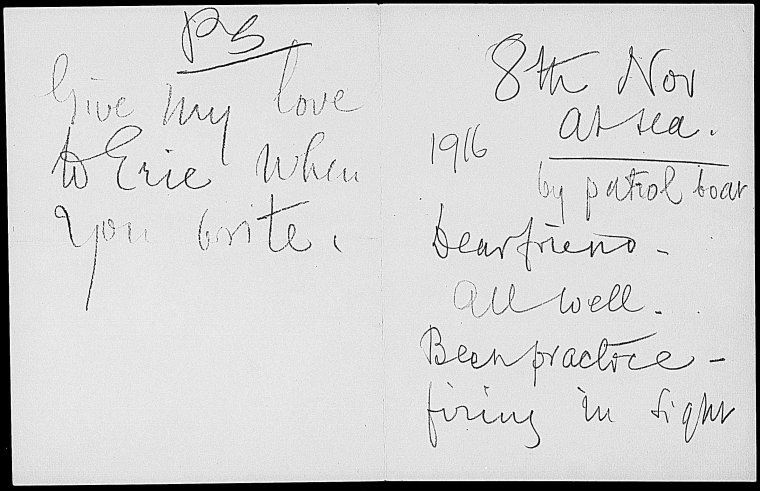 PS
Give my love
to Eric when
you write.
8th Nov
At sea.
1916
by patrol boat
Dear friend -
All well.
Been practice -
firing in sight